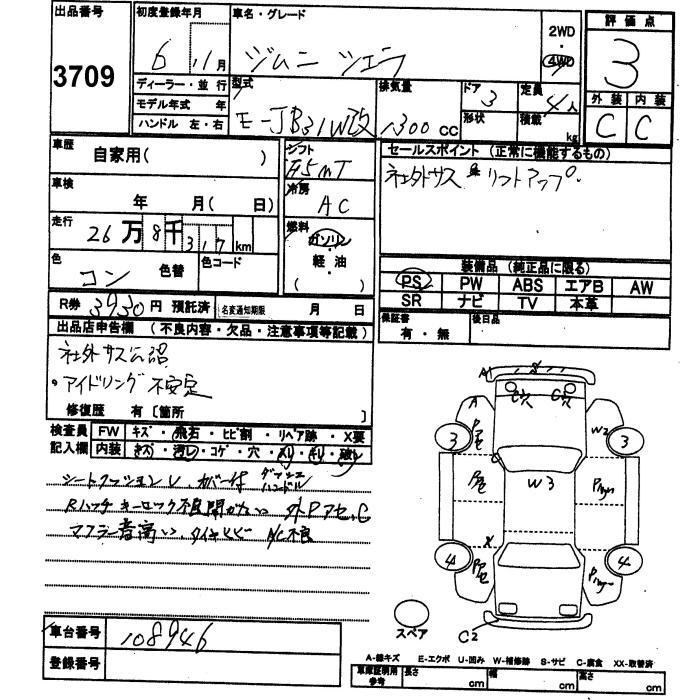 出品番号 初度登録年月 車名・グレード 評価点
3709 6 11月 ジムニ シエラ 2WD・4WD 3
ディーラー・並行 型式 排気量 ドア 3 定員 4人 外装 内装
モデル年式 年 E-JB31W改 1300cc 形状 積載 kg C C
ハンドル 左・右
車歴 シフト セールスポイント (正常に機能するもの)
自家用( ) F5MT 社外サス リフトアップ。
車検 冷房
年 月( 日) AC
走行 燃料
26万8千317km ガソリン・軽・油
色 色替 色コード ( ) 装備品 (純正品に限る)
コン PS PW ABS エアB AW
R券 3930円 預託済 名変通知期限 月 日 SR ナビ TV 本革
出品店申告欄 (不良内容・欠品・注意事項等記載) 保証書 有・無 後日品
社外サス公認
・アイドリング不安定
修復歴 有 [箇所 ]
検査員記入欄 FW キズ・飛石・ヒビ割・リペア跡・X要
内装 キズ・汚レ・コゲ・穴・スリ・キレ・破レ
シートクッションV カバー付 ダッシュ ハンドル
Rハッチ キーロック不良 開かない 外Pアセ、C
マフラー音高い、タイヤヒビ A/C不良
A1 S
C穴 C穴
A W2
3 Pアセ 3
Pアセ W3
X
4 Pアセ 4
スペア C2
車台番号 108946
登録番号
A-線キズ E-エクボ U-凹み W-補修跡 S-サビ C-腐食 XX-取替済
車庫証明用参考 長さ cm 幅 cm 高さ cm